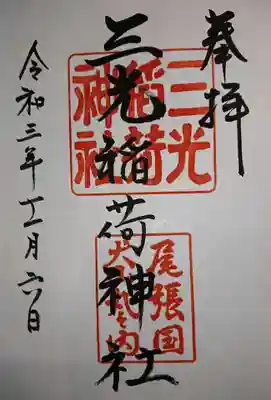 奉拝
三光
稲荷
神社
三光稲荷神社
尾張国
之内
令和三年十一月六日